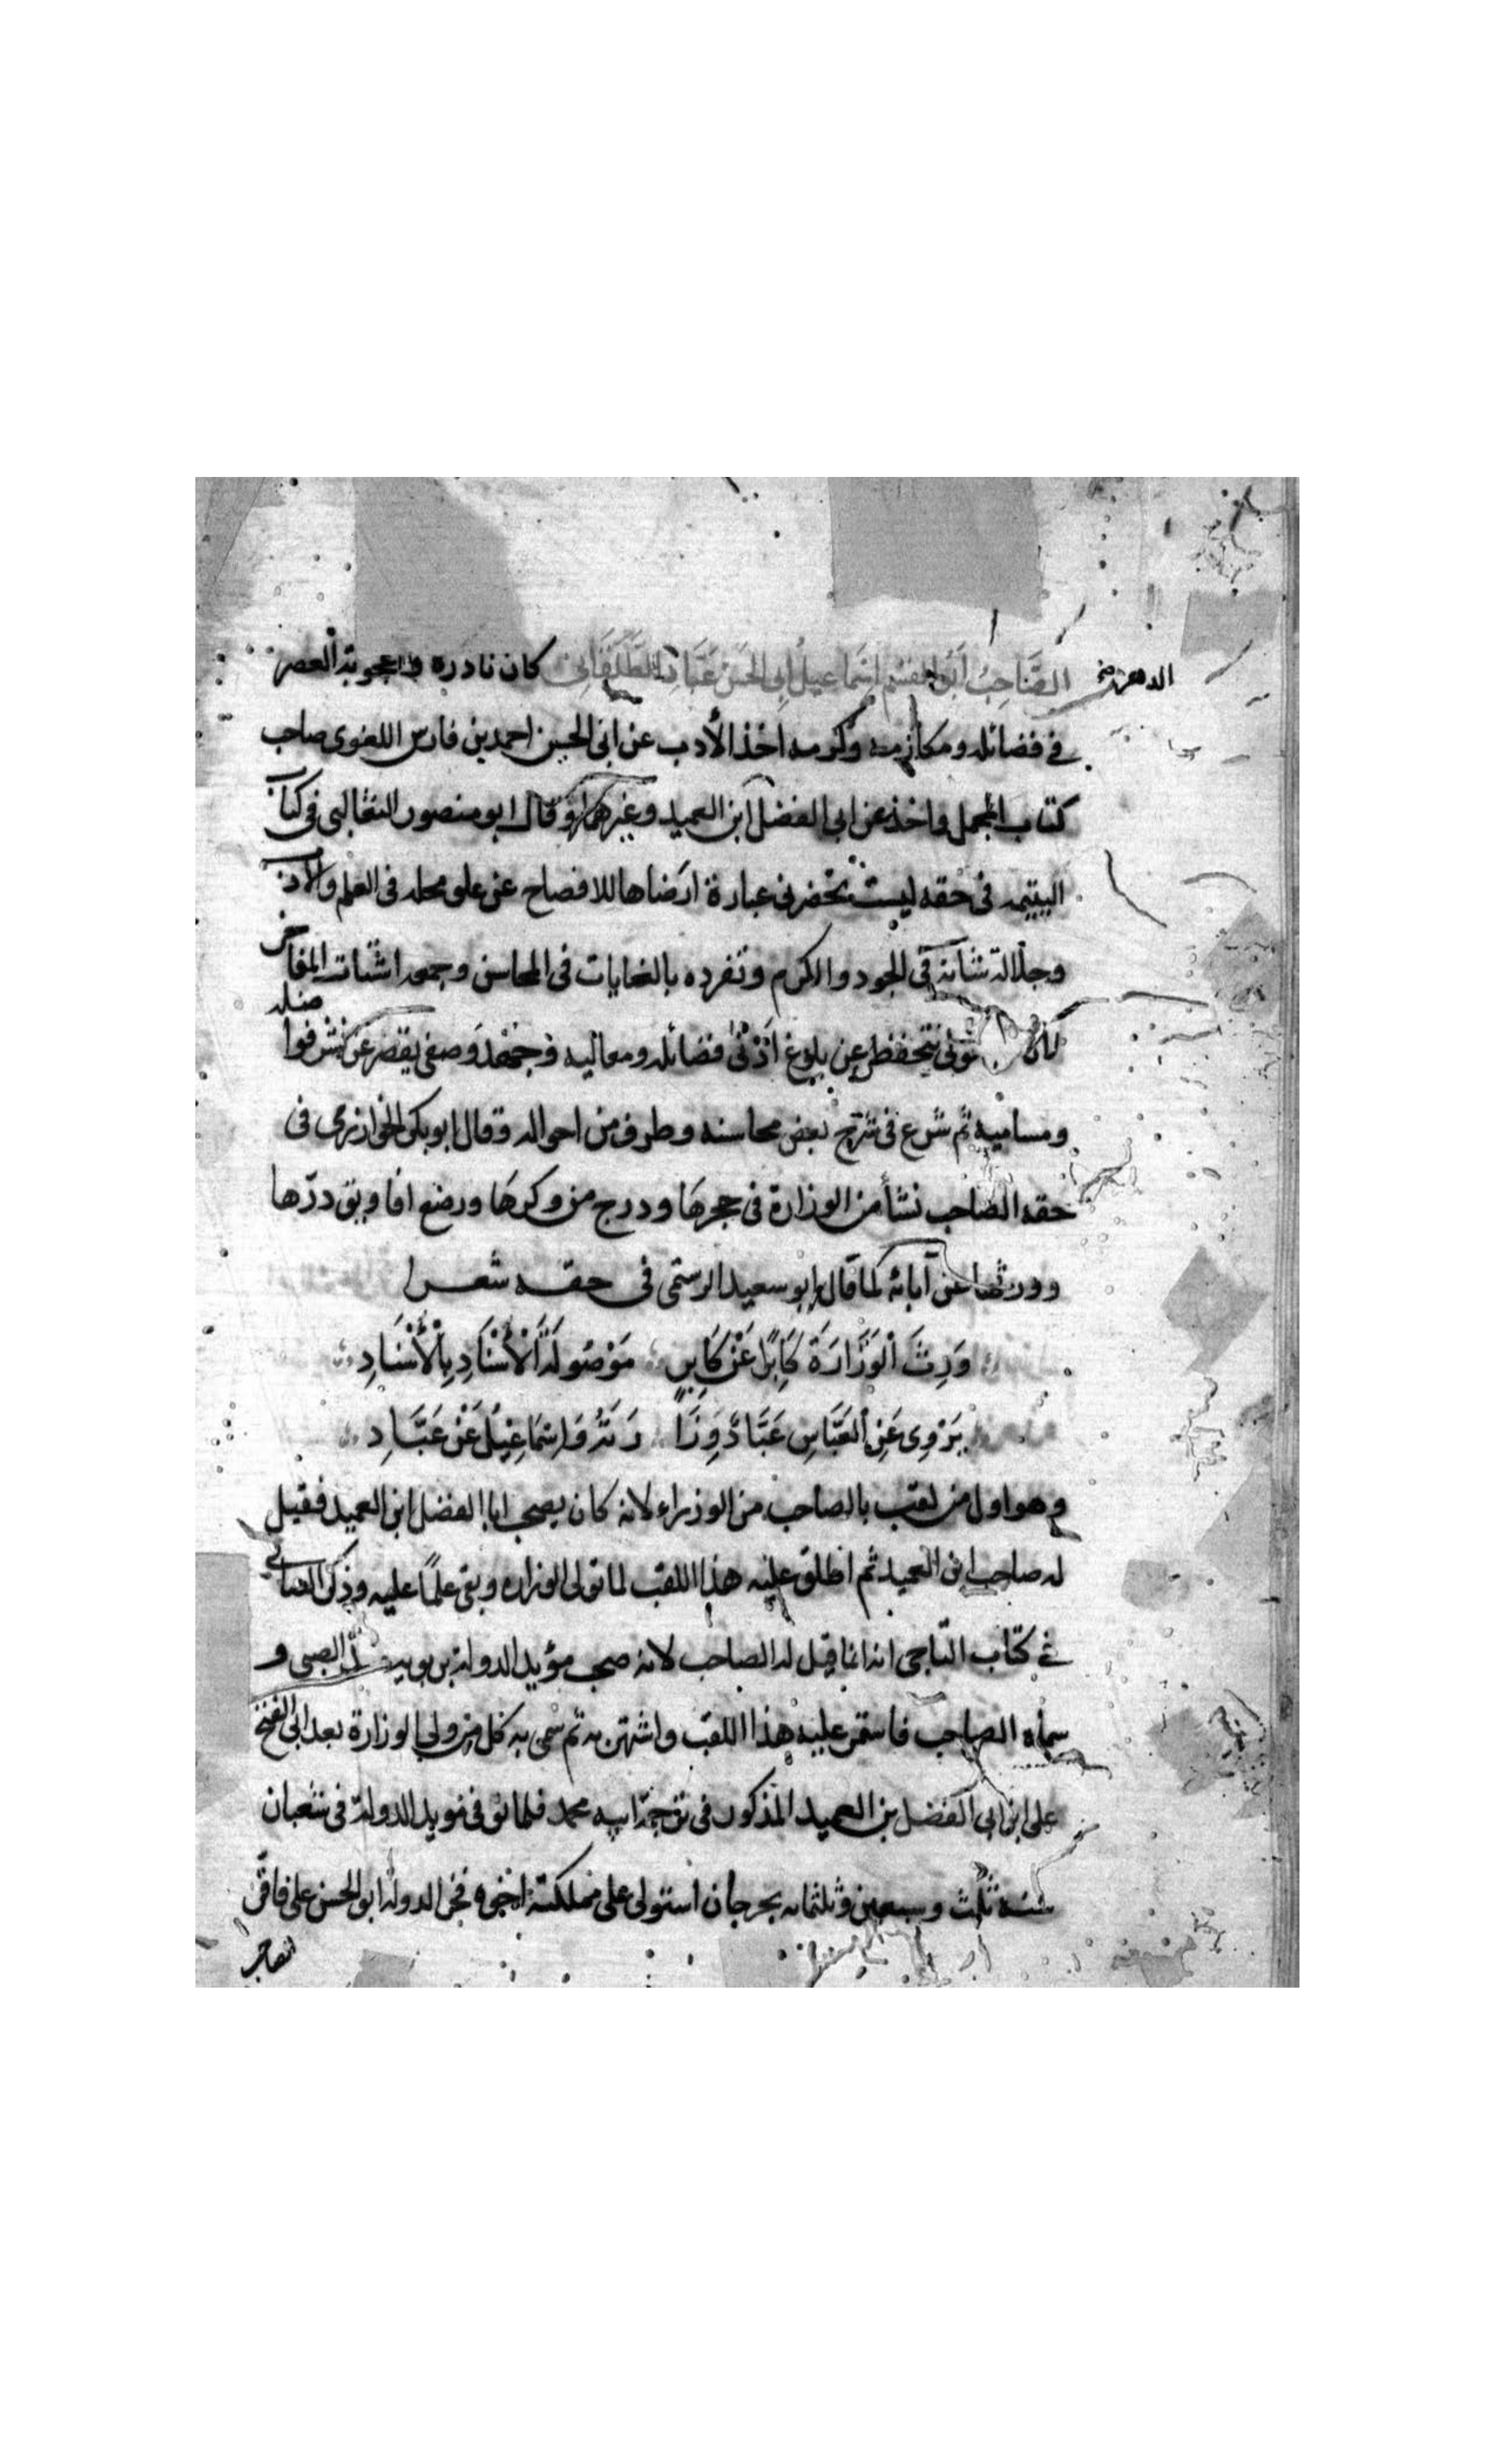 الدهر نخ
الصَّاحِبُ أَبُو القسم إِسْمَاعِيلُ ابِى الحَسَن عَبَّادِ الطَّلَقَانِى كان نادرة واعجوبة العصر
فى فضائله ومكارمه وكرمه اخذ الأدب عن ابى الحسين احمد بن فارس اللغوى صاحب
كتاب المجمل واخذ عن ابى الفضل ابن العميد وغيرهما وقال ابو منصور الثعالبى فى كتاب
اليتيمه فى حقه ليست تحضرنى عبارة ارضاها للافصاح عن علو محله فى العلم والادب
وجلالة شانه فى الجود والكرم وتفرده بالغايات فى المحاسن وجمعه اشتات المفاخر
لان قولى يتخفظ عن بلوغ أدنى فضائله ومعاليه وجهد وصفى يقصر عن فواضله
ومساميه ثم شرع فى شرح بعض محاسنه وطرف من احواله وقال ابو بكر الخوارزمى فى
حقه الصاحب نشأ من الوزارة فى حجرها ودرج من وكرها ورضع افاويق درّها
وورثها عن آبائه كما قال ابو سعيد الرستمى فى حقه شعرا
وَرِثَ الْوَزَارَةَ كَابِرًا عَنْ كَابِرٍ مَوْصُولَةَ الْأَسْنَادِ بِالْأَسْنَادِ
يَرْوِى عَنِ العَبَّاسِ عَبَّادٌ وِزَا رَتَهُ وَاِسْمَاعِيْلُ عَنْ عَبَّادِ
وهو اول من لقب بالصاحب من الوزراء لانه كان يصحب ابا الفضل ابن العميد فقيل
له صاحب ابن العميد ثم اطلق عليه هذا اللقب لما تولى الوزاره وبقى علمًا عليه وذكر الصابى
فى كتاب التاجى انه انما قيل له الصاحب لانه صحب مؤيد الدولة بن بويه الصبى و
سماه الصاحب فاستمر عليه هذا اللقب واشتهر به ثم سمى به كل من ولى الوزارة بعد ابى الفتح
على ابن ابى الفضل بن العميد المذكور فى ترجمة ابيه محمد فلما توفى مويد الدولة فى شعبان
سنه ثلث وسبعين وثلثمائه بجرجان استولى على مملكته اخوه فخر الدولة ابو الحسن على فاقر